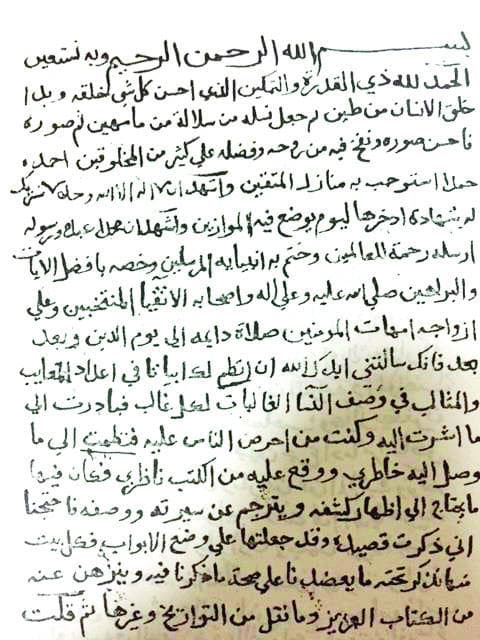 بسم الله الرحمن الرحيم وبه نستعين
الحمد لله ذي القدرة والتمكين الذي احسن كل شي خلقه وبدا
خلق الانسان من طين ثم جعل نسله من سلالة من ما مهين ثم صوره
فاحسن صوره ونفخ فيه من روحه وفضله علي كثير من المخلوقين احمده
حمدا استوجب به منازل المتقين واشهد ان لا اله الا الله وحده لا شريك
له شهادة ادخرها ليوم يوضع فيه الموازين واشهد ان محمدا عبده ورسوله
ارسله رحمة للعالمين وختم به انبيايه المرسلين وخصه بافضل الايات
والبراهين صلي الله عليه وعلي اله واصحابه الاتقيا المنتخبين وعلي
ازواجه امهات المومنين صلاة دايمه الي يوم الدين وبعد
فانك سالتني ايدك الله ان انظم لك ابياتا في اعداد المعايب
والمثالب في وصف النسا الغالبات لكل غالب فبادرت الي
ما اشرت اليه وكنت من احرص الناس عليه فنظمت الي ما
وصل اليه خاطري ووقع عليه من الكتب ناظري فكان فيها
ما يحتاج الي اظهار كشفه ويترجم عن سيرته ووصفه فاحتجنا
الي ذكرت قصيده وقد جعلتها علي وضع الابواب فكل بيت
ما يعضدنا علي صحة ما ذكرنا فيه ويبرهن عنه
من الكتاب العزيز وما نقل من التواريخ وغيرها ثم قلت